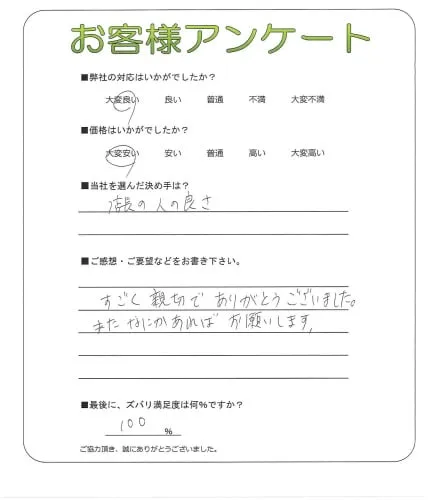 お客様アンケート
■弊社の対応はいかがでしたか？
大変良い 良い 普通 不満 大変不満
■価格はいかがでしたか？
大変安い 安い 普通 高い 大変高い
■当社を選んだ決め手は？
店長の人の良さ
■ご感想・ご要望などをお書き下さい。
すごく親切でありがとうございました。
またなにかあればお願いします。
■最後に、ズバリ満足度は何％ですか？
100 ％
ご協力頂き、誠にありがとうございました。